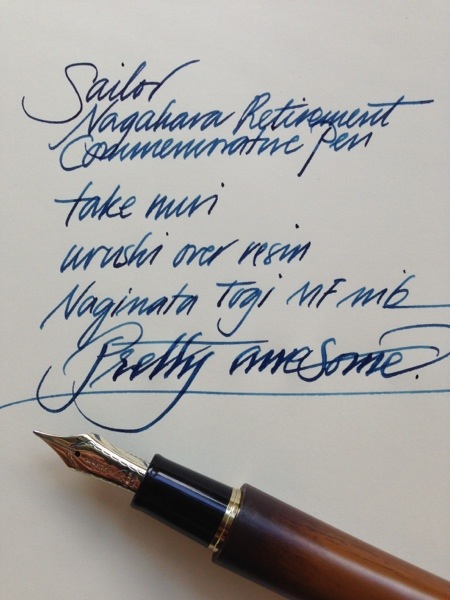 Sailor
Nagahara Retirement
Commemorative Pen
take nuri
urushi over resin
Naginata Togi MF nib
Pretty awesome.